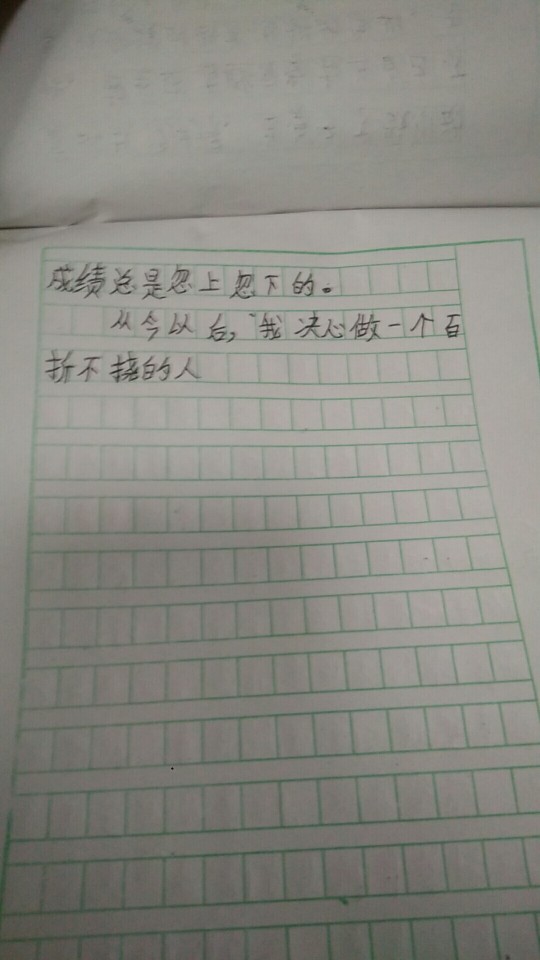 成绩总是忽上忽下的。
从今以后,我决心做一个百
折不挠的人